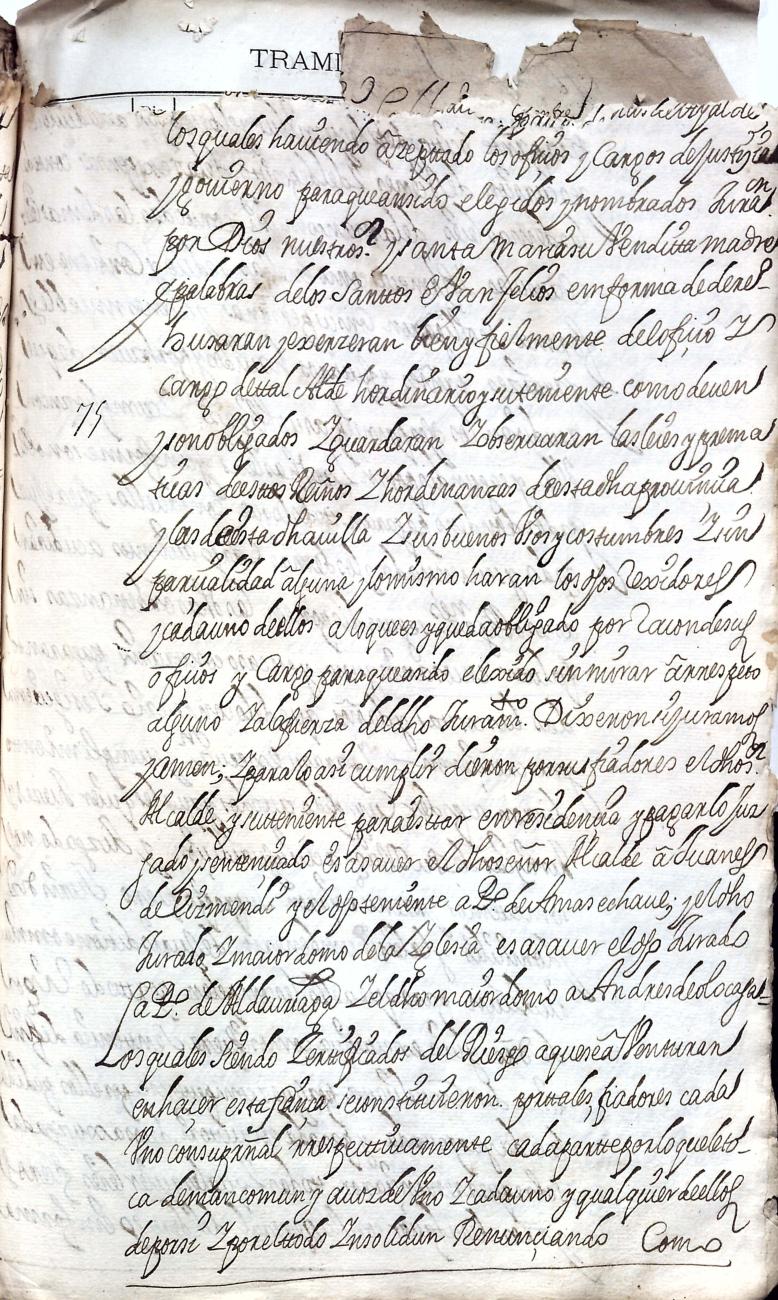 TRAMI
los quales haviendo açeptado los ofiçios y Cargos de Justiçia
y govierno para que an sido elegidos y nombrados Juraron
por Dios nuestro sr. y santa maria su Vendita madre
y palabras de los santtos evanjelios en forma de dere-
husaran y exerzeran bien y fielmente del ofiçio Y
cargo de ttal Alde hordinario y su teniente como deven
75
y son obligados Y guardaran Y observaran las leies y prema
ticas de estos Reinos Y hordenanzas de esta dha provincia
y las de esta dha villa Y sus buenos Usos y costumbres Y sin
parcialidad alguna y lo mismo haran los dhos rexidores
y cada uno de ellos a lo que es y queda obligado por racon de sus
ofiçios y Cargo para que an sido elexido sin mirar a rrespeto
alguno Y a la fuerza del dho Juramto. Dixeron si juramos
y amen, Y para lo asi cumplir dieron por sus fiadores el dho sr.
Alcalde y su teniente para estar en residencia y pagar lo Juz
gado y sentenciado es a saver el dho señor Alcalde a Juanes
de Eizmendi y el dho teniente a Po. de Amasechave, y el dho
Jurado Y maiordomo de la Yglesia es a saver el dho Jurado
a Po. de Aldauriaga Y el dho maiordomo a Andres de olocasa-
Los quales siendo Zertificados del Riesgo a que se aventuran
en haçer esta fiança se constituieron por tales fiadores cada
Uno con su prinçal rrespectivamente cada parte por lo que le to-
ca de mancomun y a voz de Uno Y cada uno y qualquier de ellos
de por si Y por el ttodo Ynsolidun Renunçiando Como